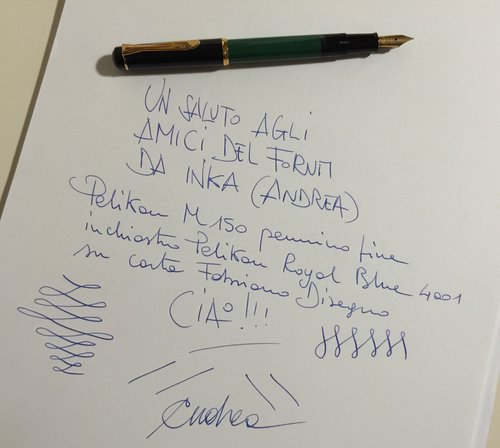 UN SALUTO AGLI
AMICI DEL FORUM
DA INKA (ANDREA)
Pelikan M 150 pennino fine
inchiostro Pelikan Royal Blue 4001
su carta Fabriano Disegno
CIAO!!!
Andrea